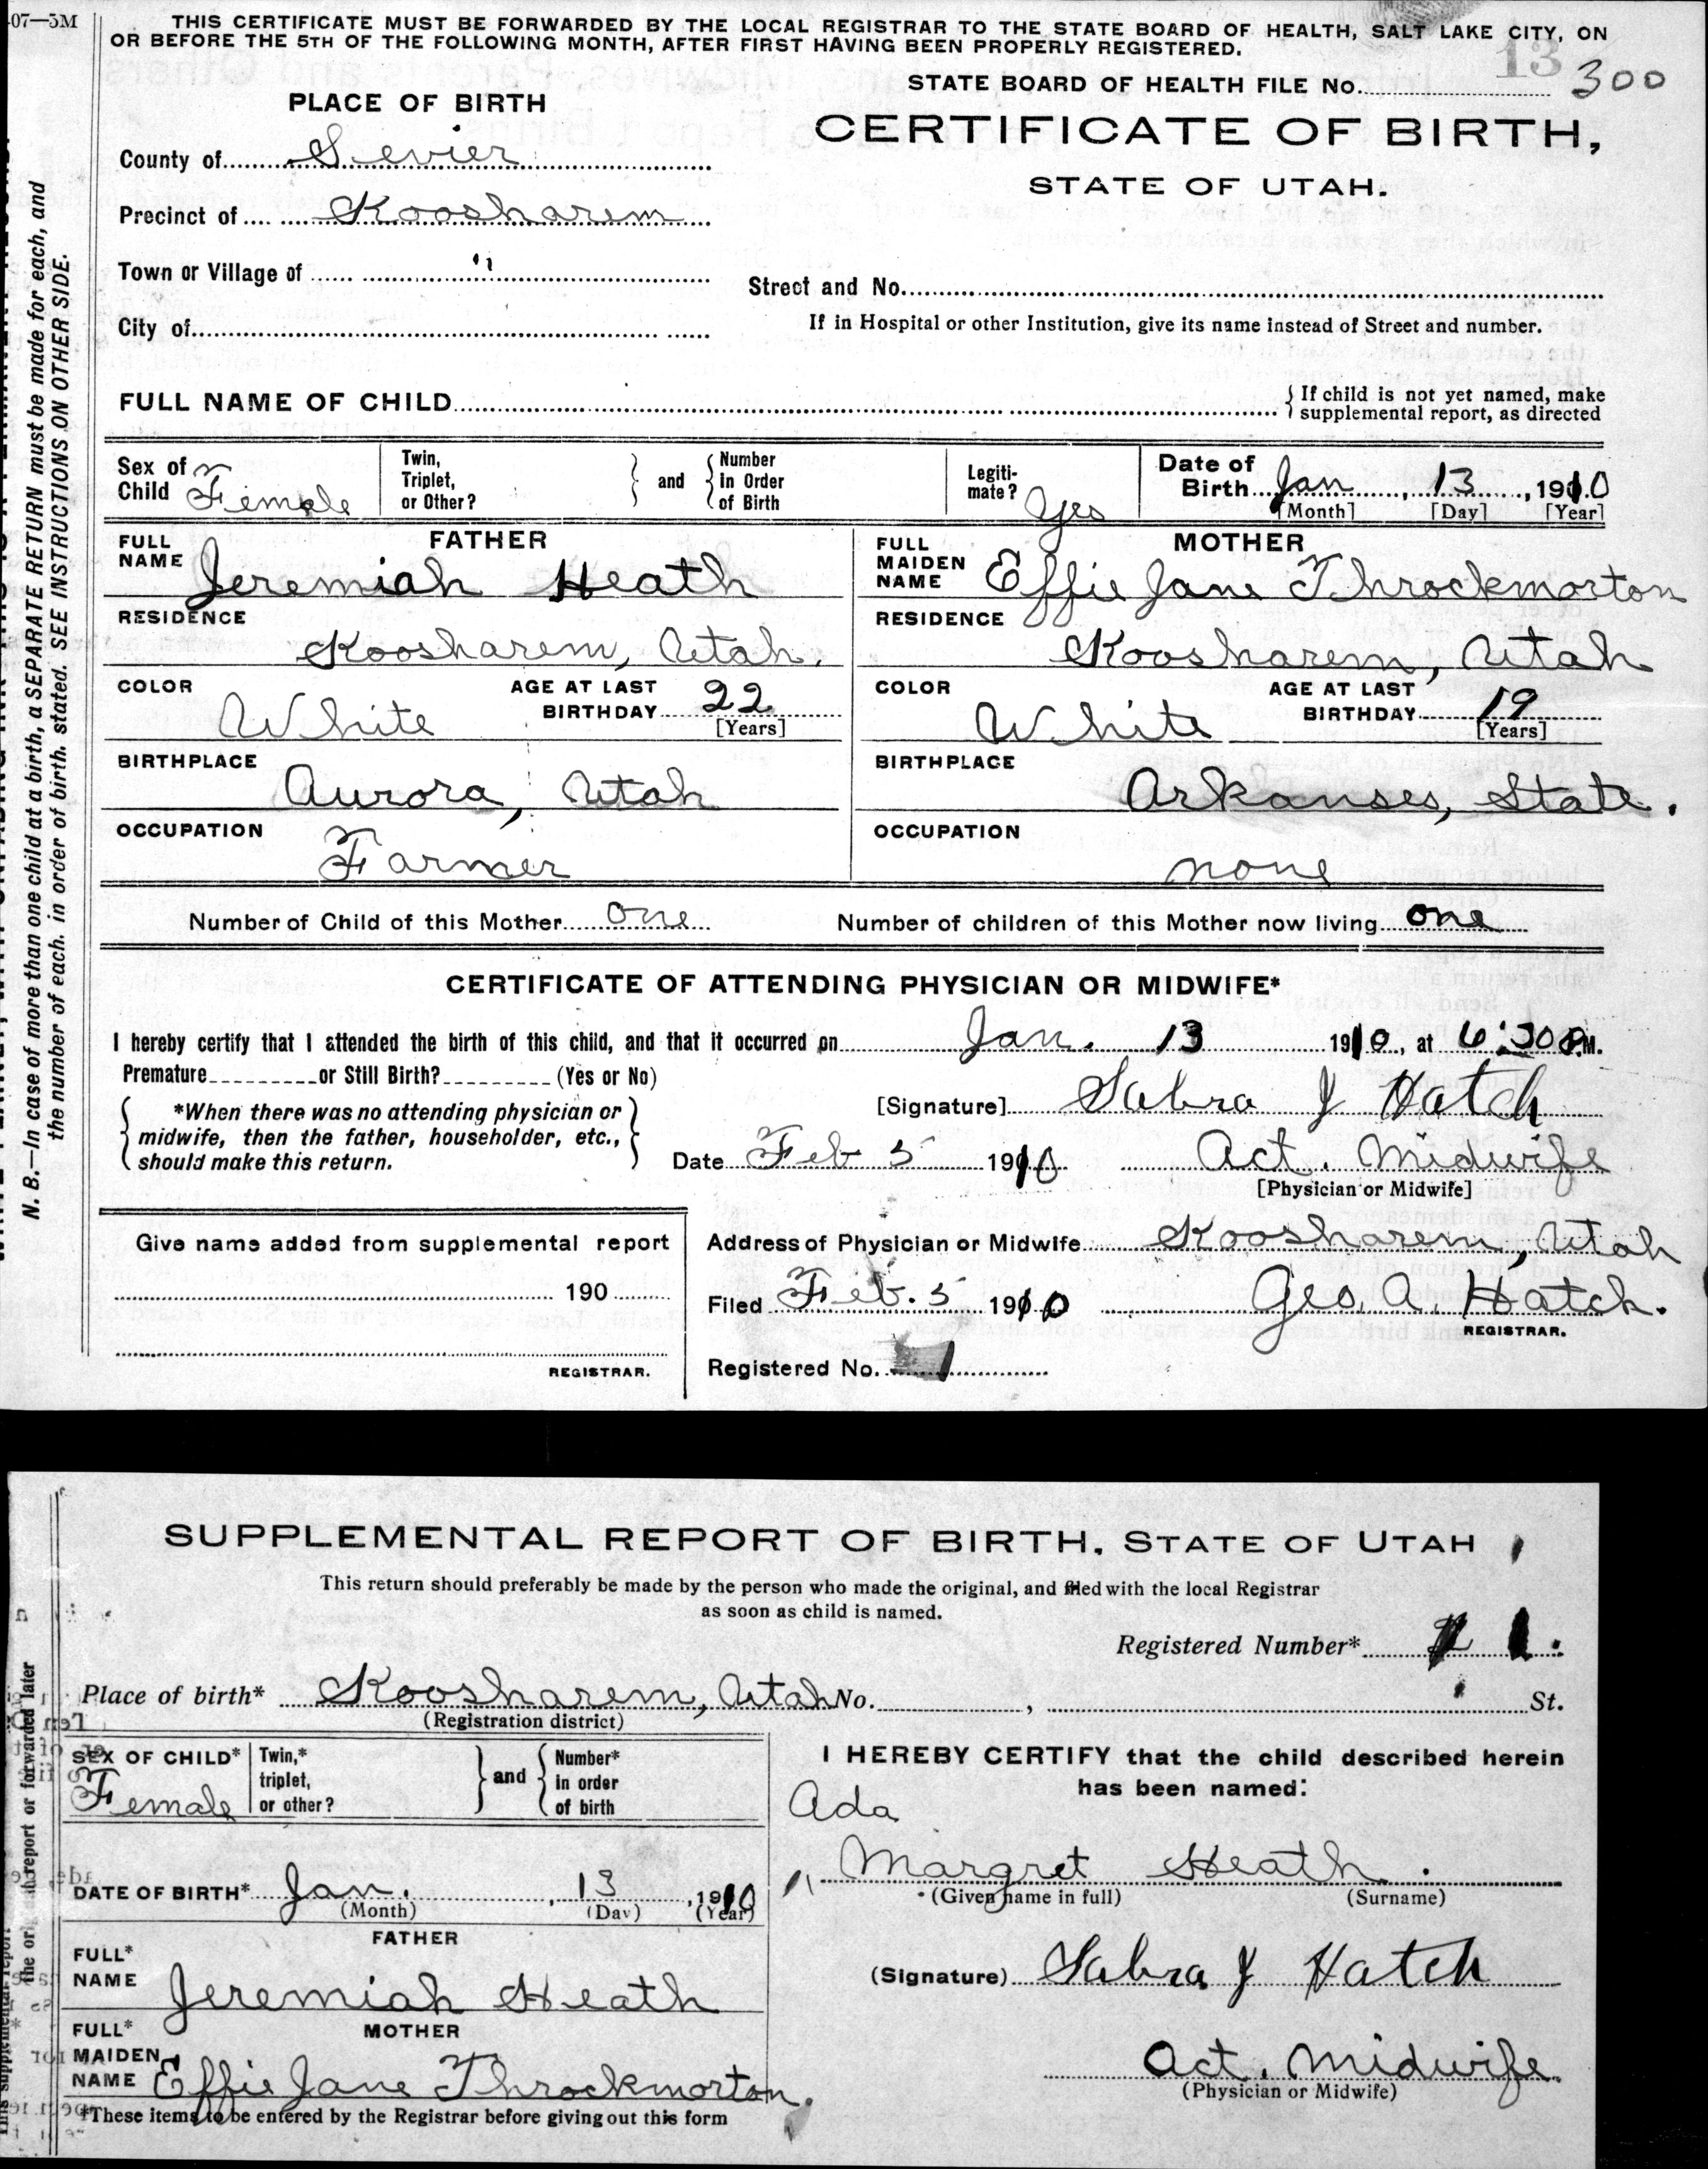 07—5M
THIS CERTIFICATE MUST BE FORWARDED BY THE LOCAL REGISTRAR TO THE STATE BOARD OF HEALTH, SALT LAKE CITY, ON
OR BEFORE THE 5TH OF THE FOLLOWING MONTH, AFTER FIRST HAVING BEEN PROPERLY REGISTERED.
13
STATE BOARD OF HEALTH FILE No. 300
PLACE OF BIRTH
CERTIFICATE OF BIRTH,
STATE OF UTAH.
County of Sevier
Precinct of Koosharem
Town or Village of "
Street and No.
City of
If in Hospital or other Institution, give its name instead of Street and number.
FULL NAME OF CHILD
{If child is not yet named, make
supplemental report, as directed
Sex of Child Female
Twin, Triplet, or Other? } and { Number In Order of Birth
Legiti-mate? Yes
Date of Birth Jan, 13, 1910
[Month] [Day] [Year]
FATHER
FULL NAME Jeremiah Heath
RESIDENCE
Koosharem, Utah.
COLOR White AGE AT LAST BIRTHDAY 22
[Years]
BIRTHPLACE
Aurora, Utah
OCCUPATION
Farmer
MOTHER
FULL MAIDEN NAME Effie Jane Throckmorton
RESIDENCE
Koosharem, Utah
COLOR White AGE AT LAST BIRTHDAY 19
[Years]
BIRTHPLACE
Arkanses, State.
OCCUPATION
none
Number of Child of this Mother one Number of children of this Mother now living one
CERTIFICATE OF ATTENDING PHYSICIAN OR MIDWIFE*
I hereby certify that I attended the birth of this child, and that it occurred on Jan. 13 1910, at 6:30 P.M.
Premature or Still Birth? (Yes or No)
{ *When there was no attending physician or
midwife, then the father, householder, etc.,
should make this return. }
[Signature] Sabra J Hatch
Date Feb 5 1910 Act. Midwife
[Physician or Midwife]
Give name added from supplemental report
190
REGISTRAR.
Address of Physician or Midwife Koosharem, Utah
Filed Feb. 5 1910 Geo. A. Hatch.
REGISTRAR.
Registered No. 1
N. B.—In case of more than one child at a birth, a SEPARATE RETURN must be made for each, and
the number of each, in order of birth, stated. SEE INSTRUCTIONS ON OTHER SIDE.
SUPPLEMENTAL REPORT OF BIRTH, STATE OF UTAH
This return should preferably be made by the person who made the original, and filed with the local Registrar
as soon as child is named.
Registered Number* 1.
Place of birth* Koosharem, Utah No. , St.
(Registration district)
SEX OF CHILD* Female
Twin,* triplet, or other? } and { Number* in order of birth
DATE OF BIRTH* Jan. , 13 , 1910
(Month) (Day) (Year)
FATHER
FULL* NAME Jeremiah Heath
MOTHER
FULL* MAIDEN NAME Effie Jane Throckmorton.
*These items to be entered by the Registrar before giving out this form
I HEREBY CERTIFY that the child described herein
has been named:
Ada
Margret Heath.
(Given name in full) (Surname)
(Signature) Sabra J Hatch
Act. Midwife
(Physician or Midwife)